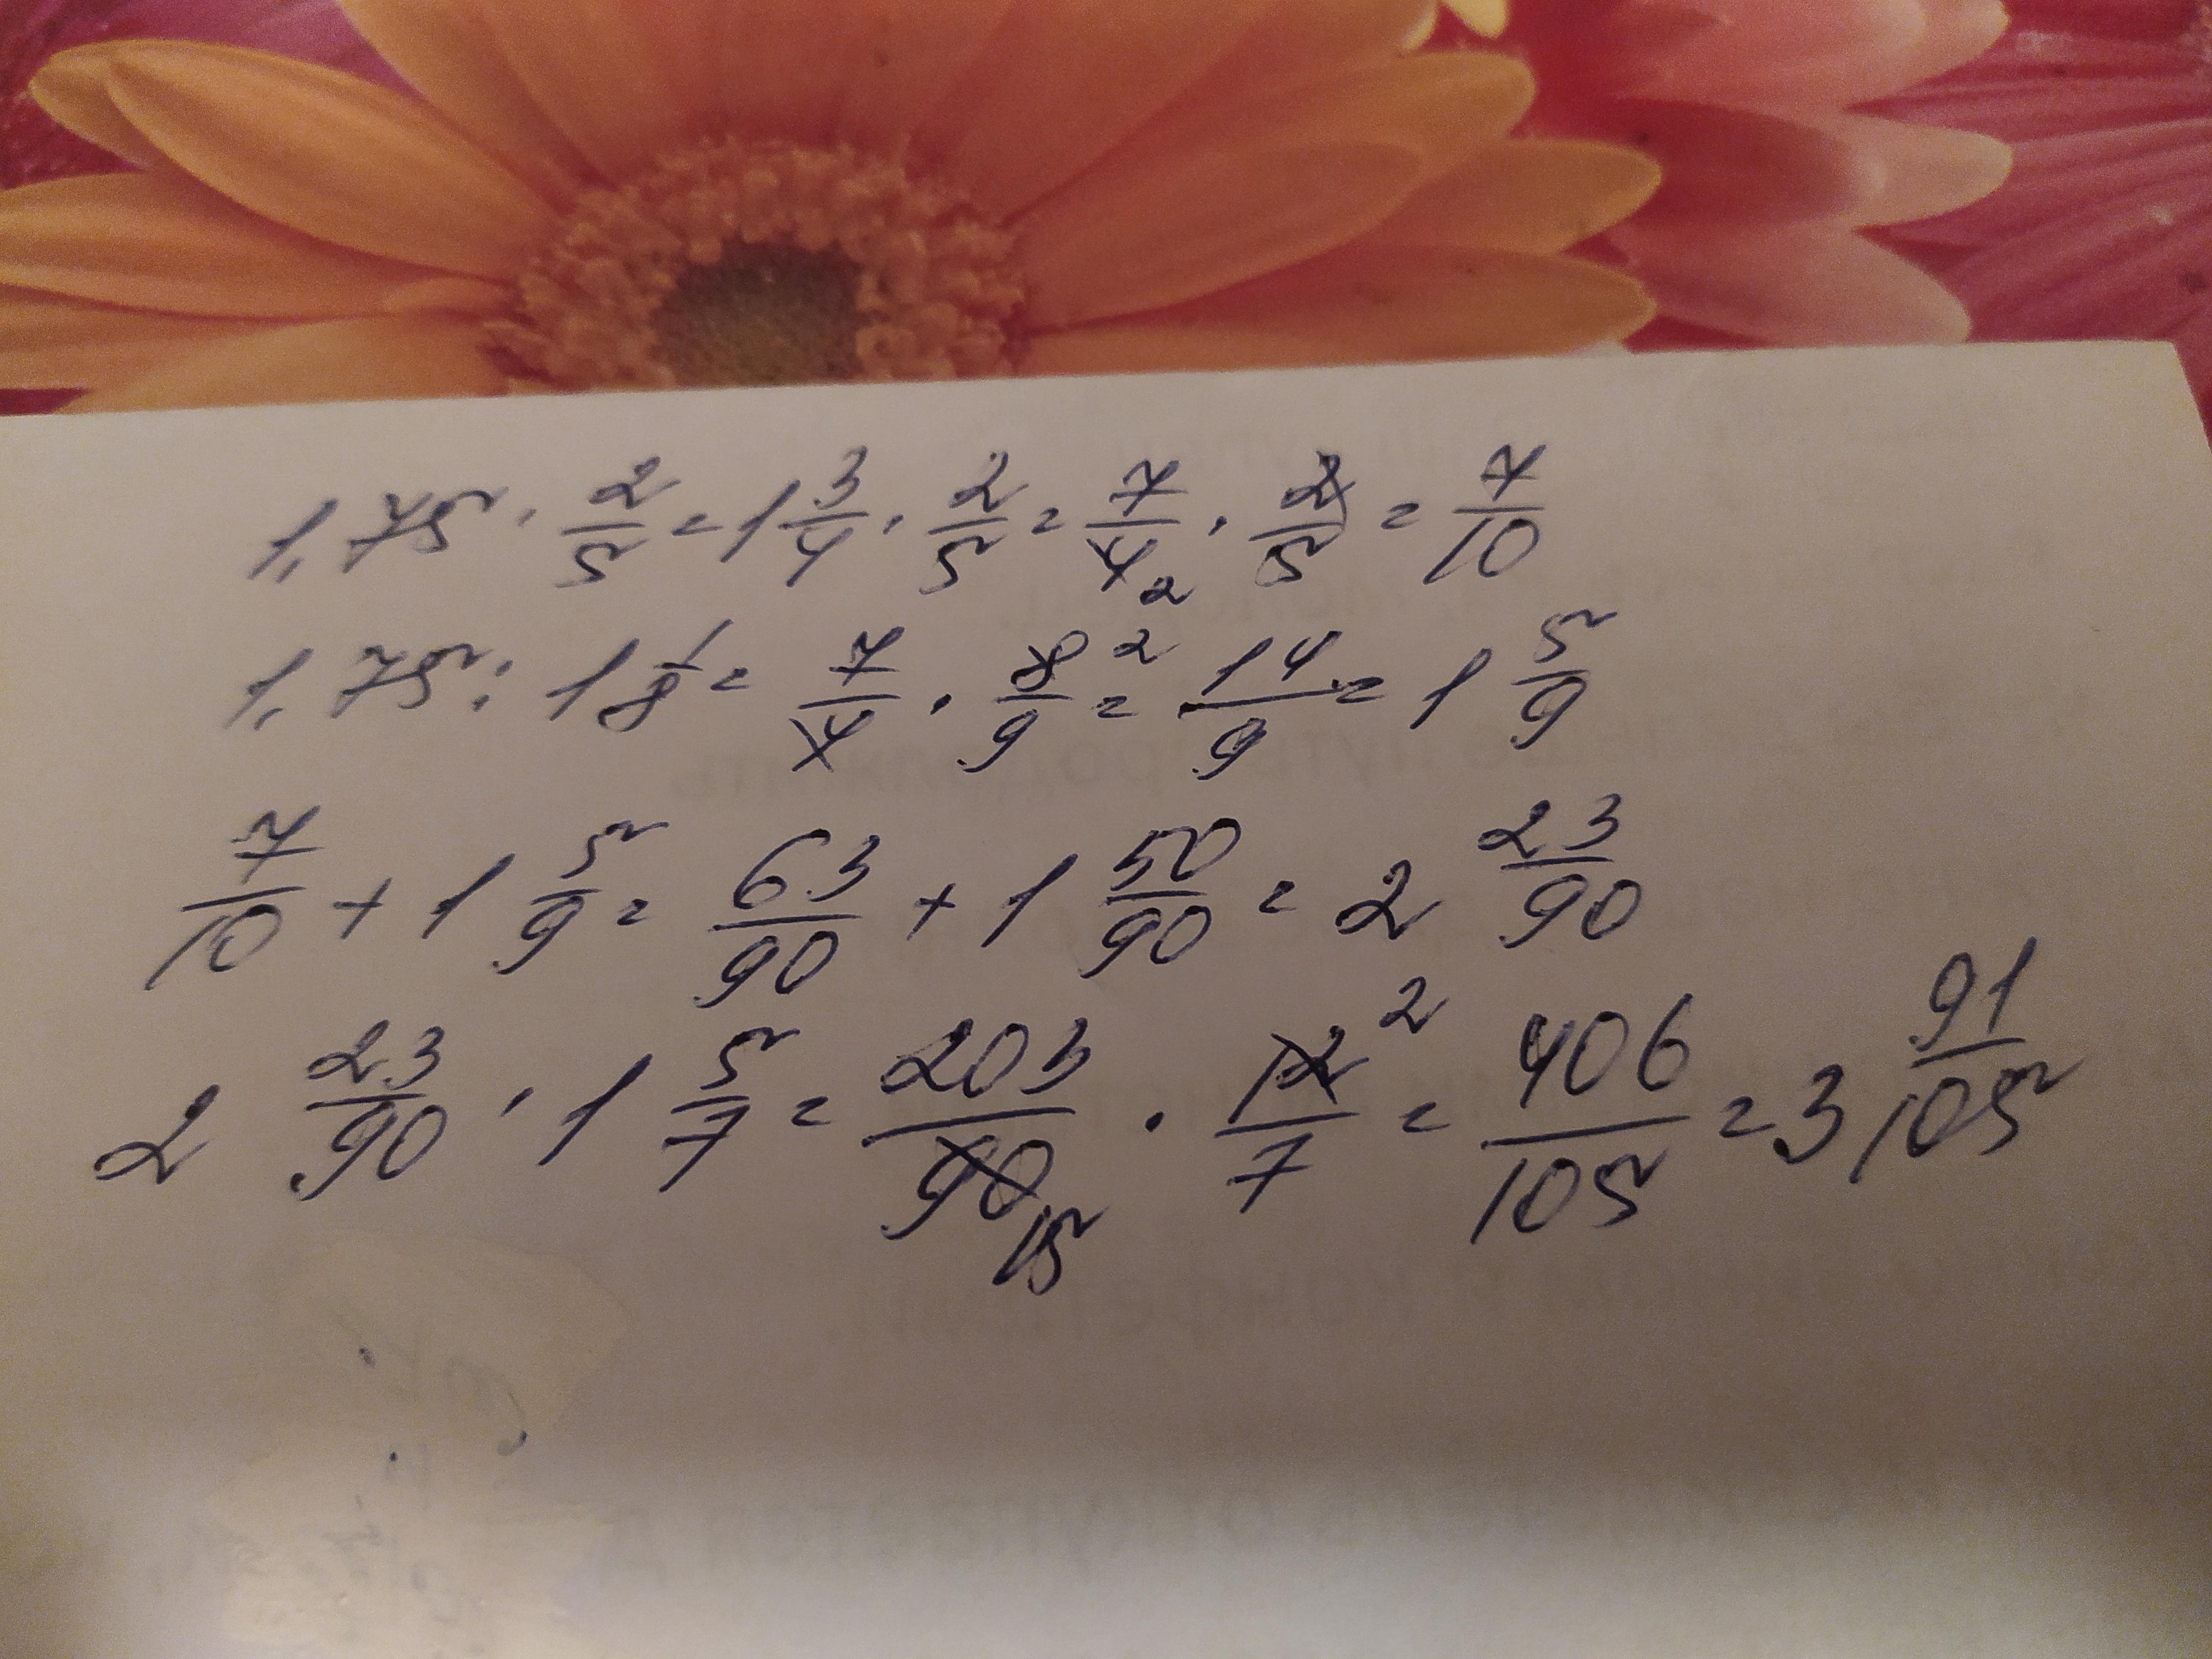 1,75 · 2/5 = 1 3/4 · 2/5 = 7/4 2 · 2/5 = 7/10
1,75 : 1 1/8 = 7/4 · 8/9 2 = 14/9 = 1 5/9
7/10 + 1 5/9 = 63/90 + 1 50/90 = 2 23/90
2 23/90 · 1 5/7 = 203/90 15 · 12/7 2 = 406/105 = 3 91/105